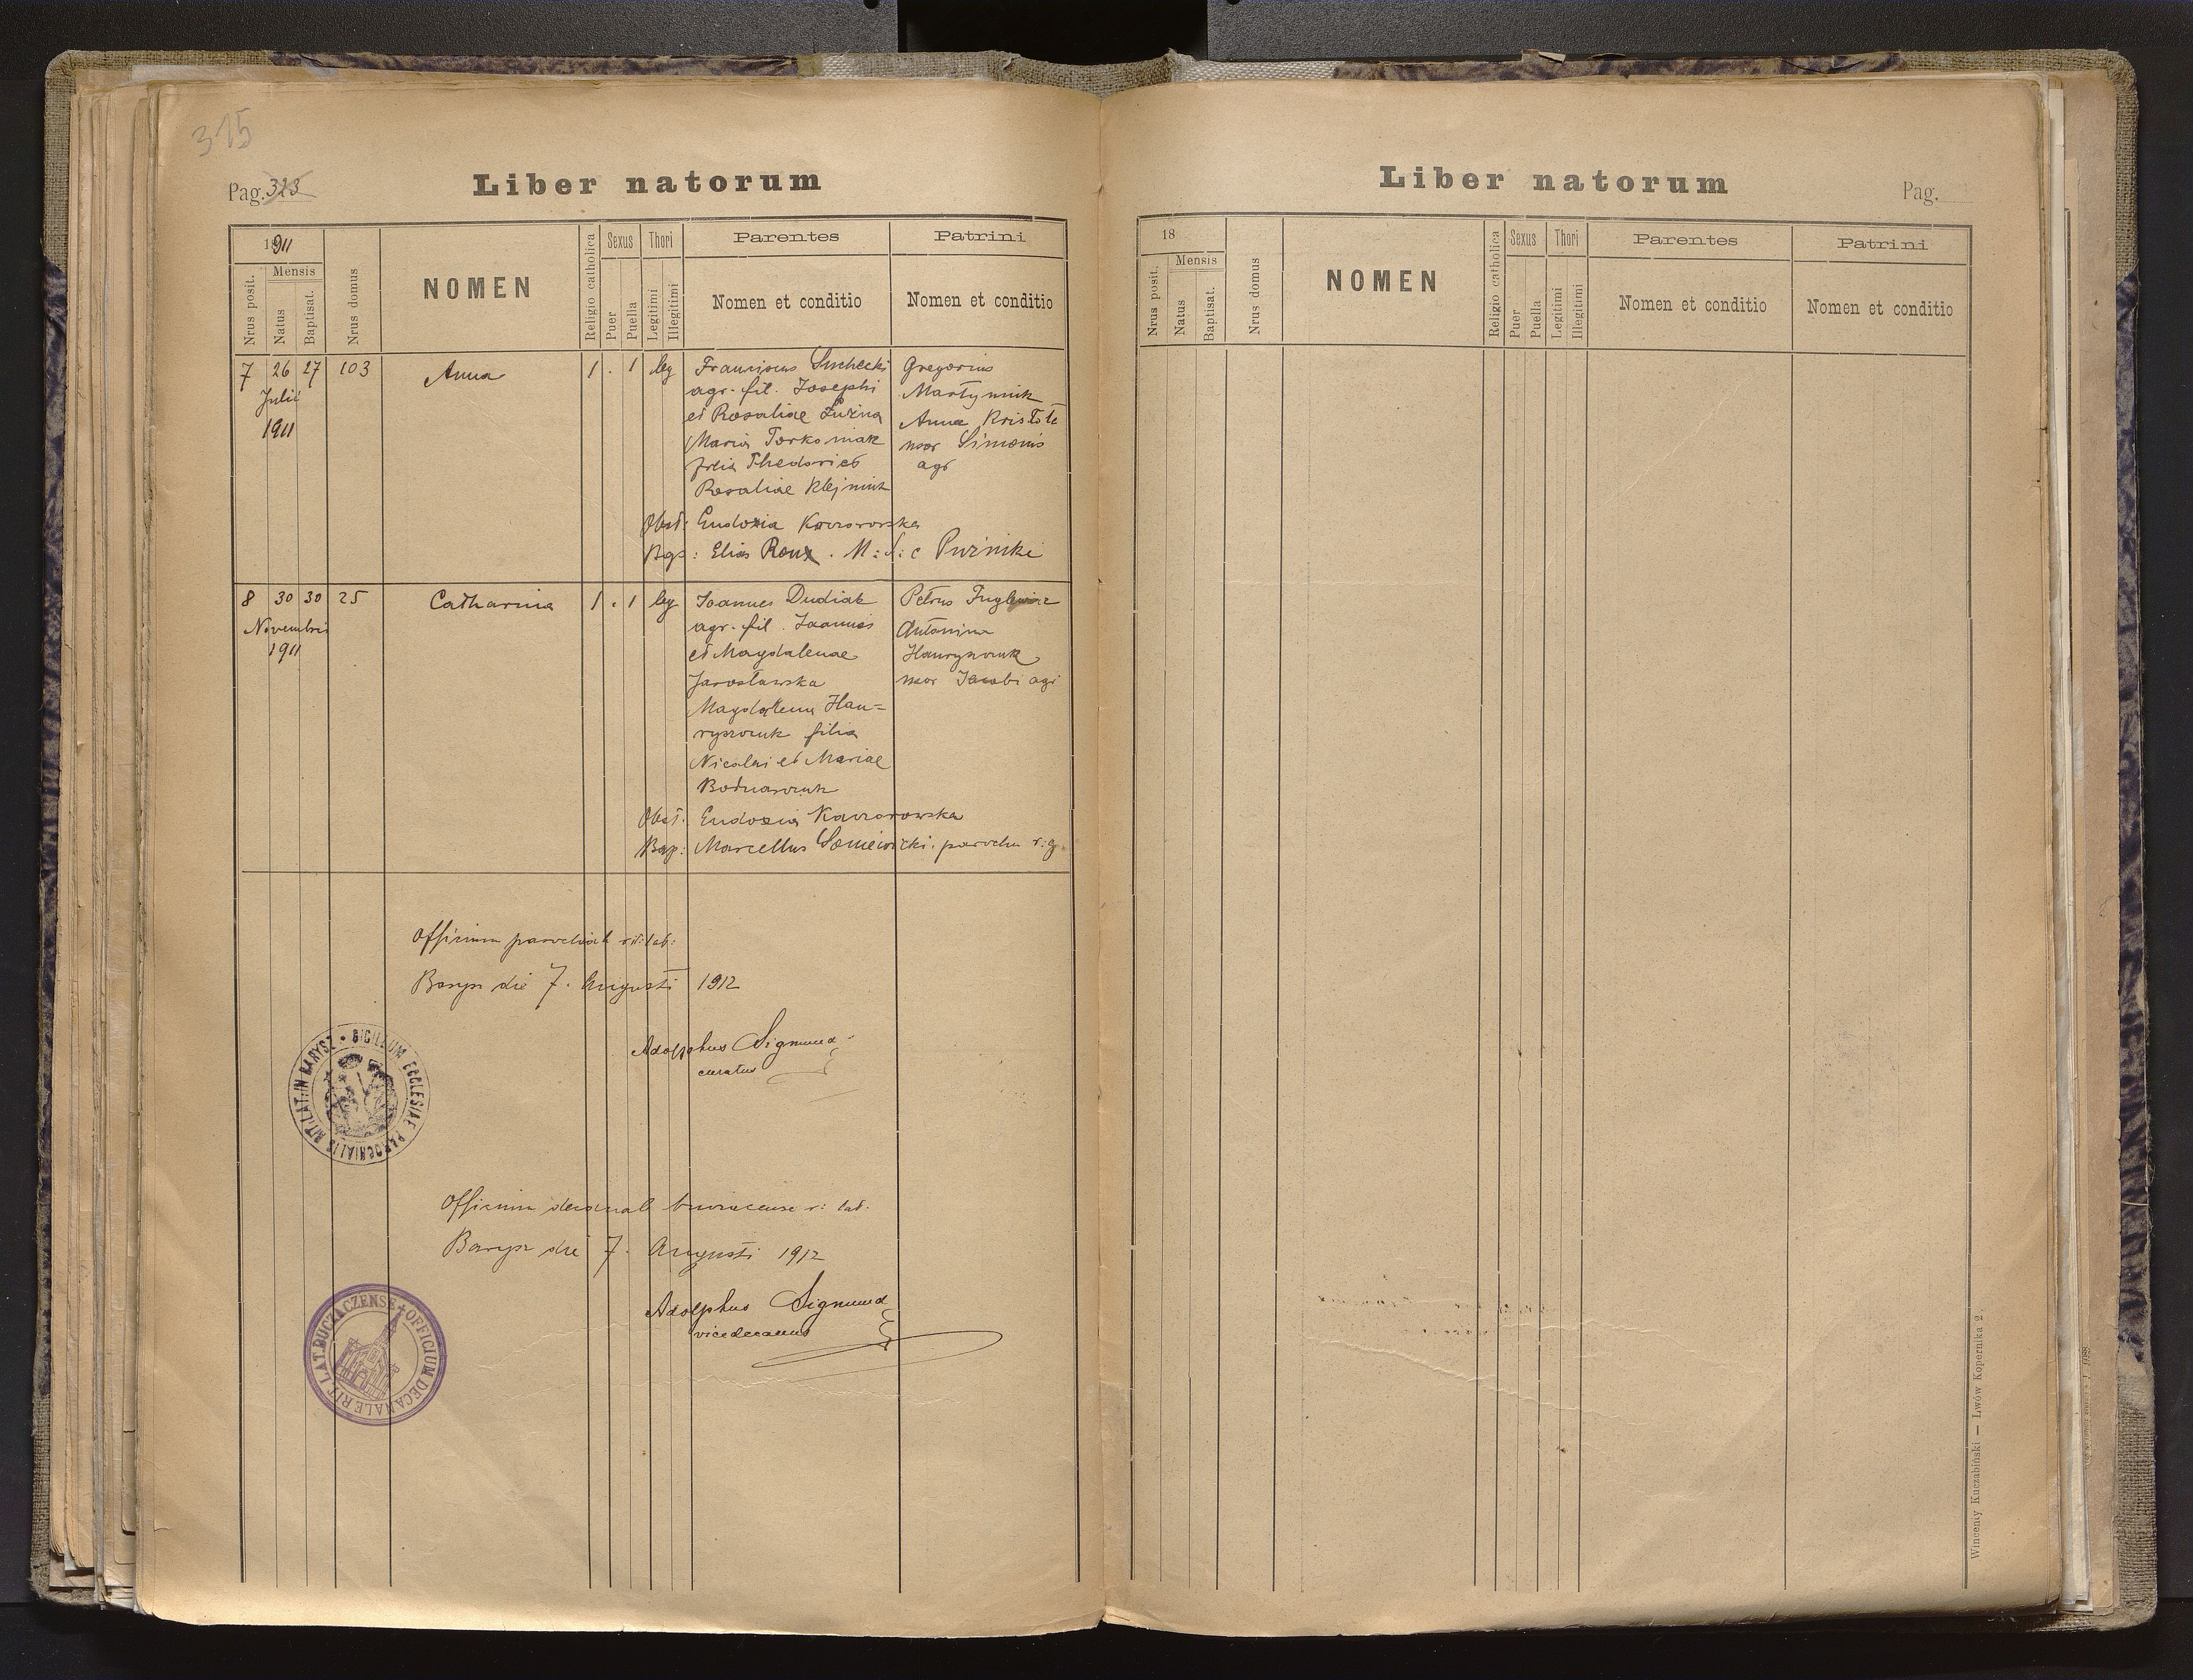 315
Pag. 323
Liber natorum
1911
Nrus posit.
Mensis
Natus
Baptisat.
Nrus domus
NOMEN
Religio catholica
Sexus
Puer
Puella
Thori
Legitimi
Illegitimi
Parentes
Nomen et conditio
Patrini
Nomen et conditio
7 26 27 103 Anna 1 . 1 leg
Julii
1911
Franciscus Suchecki
agr. fil. Josephi
et Rosaliae
Maria Torkoniak
filia
Rosaliae
Gregorius
Martyniuk
Anna
uxor Simonis
agr
Obst: Eudoxia
Bap: Elias . M: S: c
8 30 30 25 Catharina 1 . 1 leg
Novembris
1911
Joannes Dudiak
agr. fil. Joannis
et Magdalenae
Jarosławska
Magdalena Haw=
ryszczuk filia
Nicolai et Mariae
Bodnarczuk
Petrus
Antonina
Hawryszczuk
uxor Jacobi agr
Obst. Eudoxia
Bap: Marcellus parochus r: g
Officium parochiale rit: lat:
Barysz die 7. Augusti 1912
Adolphus Sigmund
curatus
SIGILLUM ECCLESIAE PAROCHIALIS RIT. LAT. IN BARYSZ
Officium decanale r: lat.
Barysz die 7. Augusti 1912
Adolphus Sigmund
vicedecanus
OFFICIUM DECANALE RIT. LAT. BUCZACZENSE
Liber natorum
Pag.
18
Nrus posit.
Mensis
Natus
Baptisat.
Nrus domus
NOMEN
Religio catholica
Sexus
Puer
Puella
Thori
Legitimi
Illegitimi
Parentes
Nomen et conditio
Patrini
Nomen et conditio
Wincenty Kuczabiński — Lwów Kopernika 2.